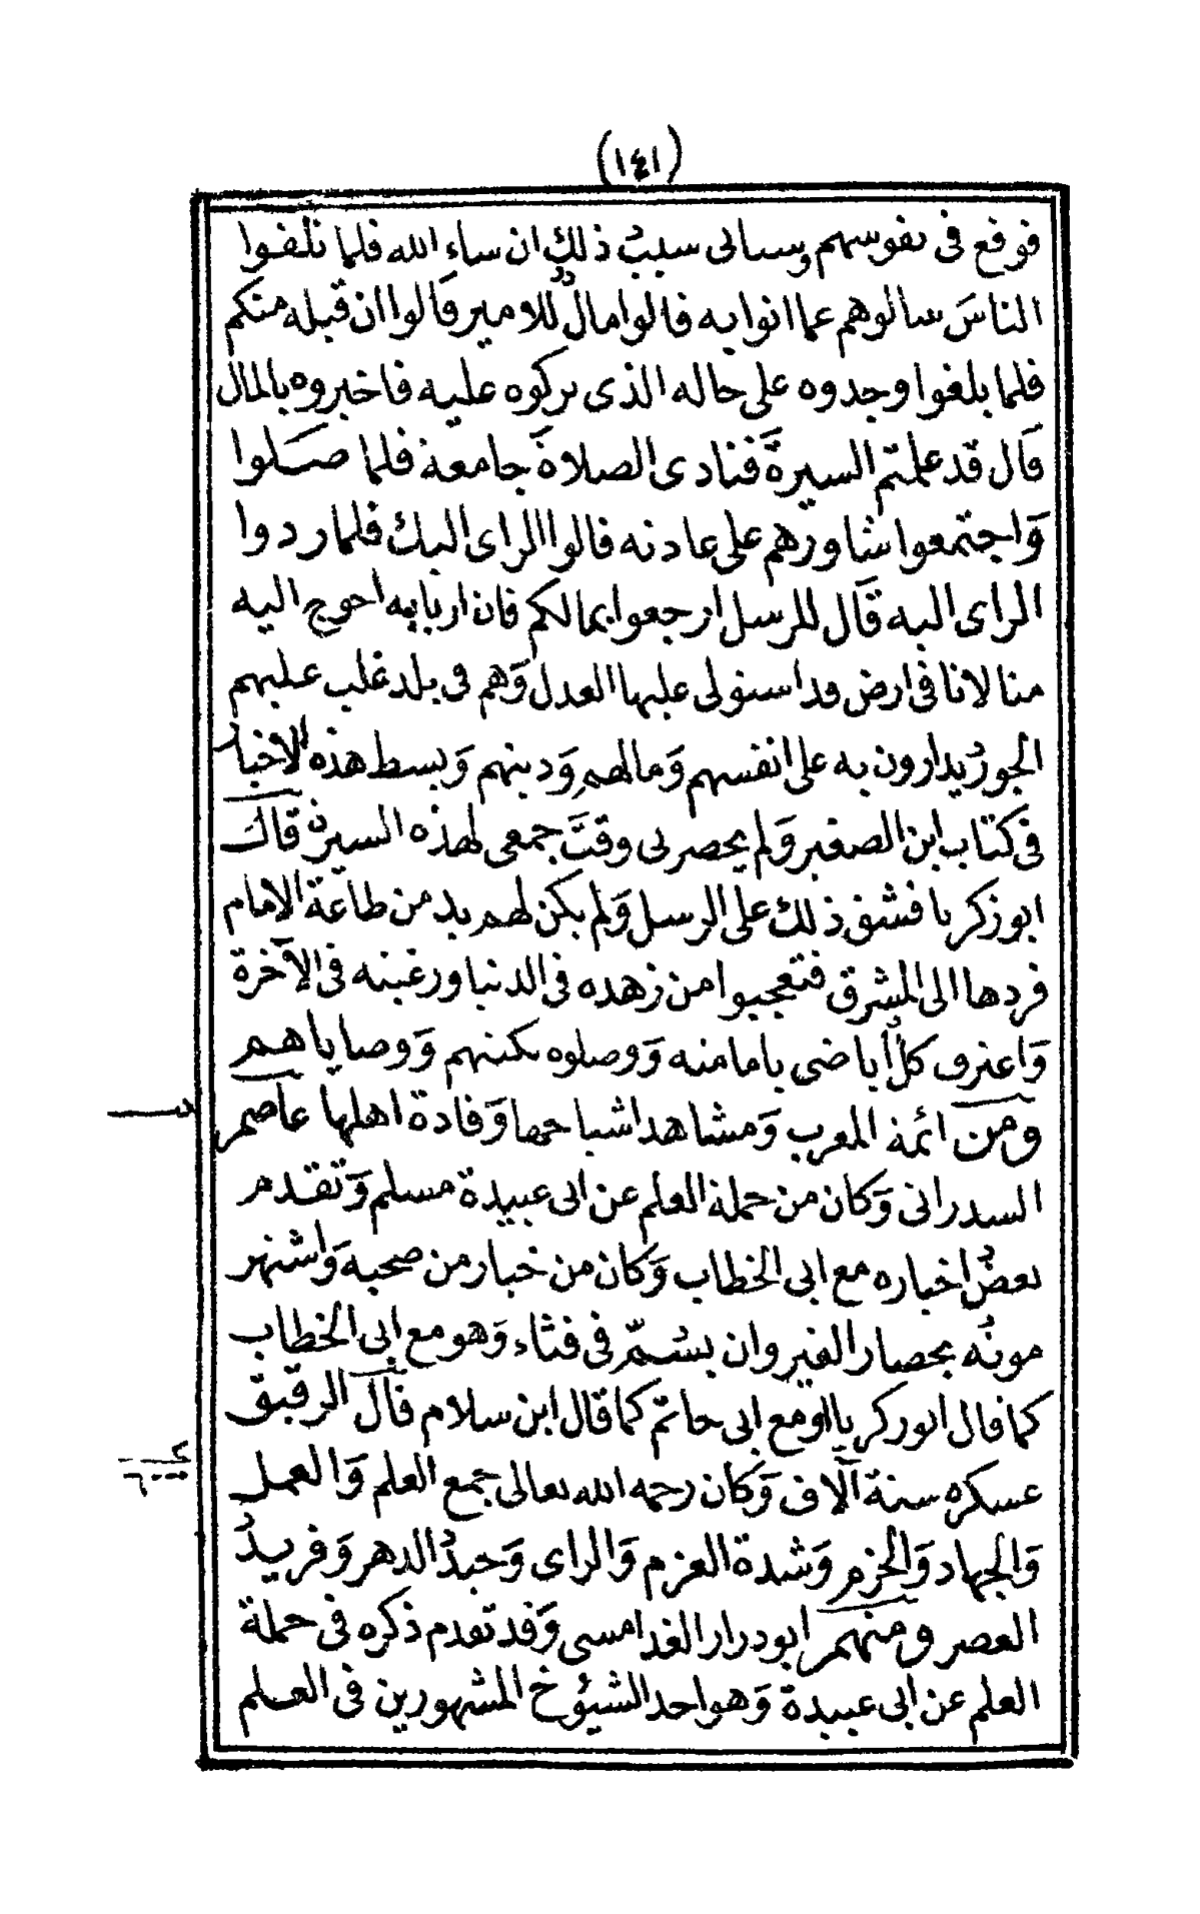 (١٤١)
فوقع فى نفوسهم وسياتى سبب ذلك ان ساء الله فلما تلقوا
الناسَ سالوهم عما اتوا به قالوا مال للامير قالوا ان قبله منكم
فلما بلغوا وجدوه على حاله الذى تركوه عليه فاخبروه بالمال
قال قد علمتم السيرةَ فنادى الصلاةَ جامعة فلما صلوا
وَاجتمعوا شاورهم على عادته قالوا الراى اليك فلما ردوا
الراى اليه قَال للرسل ارجعوا بمالكم فان اربابه احوج اليه
منا لانا فى ارض قد استولى عليها العدل وَهم فى بلد غلب عليهم
الجور يدارون به على انفسهم وَمالهم وَدينهم وَبسط هذه الاخبار
فى كتاب ابن الصغير وَلم يحضر لى وقتَ جمعى لهذه السيرة قال
ابو زكريا فشق ذلك على الرسل وَلم يكن لهم بد من طاعة الامام
فردها الى المشرق فتعجبوا من زهده فى الدنيا ورغبته فى الآخرة
وَاعترف كلُّ اباضى بامامته وَوصلوه بكتبهم وَوصاياهم
ومن ائمة المغرب وَمشاهد اشياخها وَقادة اهلها عاصم
السدراتى وَكان من حملة العلم عن ابى عبيدة مسلم وَتقدم
بعضُ اخباره مع ابى الخطاب وَكان من خيار من صحبه وَاشتهر
موتُه بحصار القيروان بسُمّ فى قثاء وَهو مع ابى الخطاب
كما قال ابو زكريا او مع ابى حاتم كما قال ابن سلام قال الرقيق
عسكره ستة آلاف وَكان رحمه الله تعالى جمع العلم وَالعمل
وَالجهاد وَالحزم وَشدة العزم وَالراى وَحيدُ الدهر وَفريدُ
العصر ومنهم ابو درار الغدامسى وَقد تقدم ذكره فى حملة
العلم عن ابى عبيدة وَهو احد الشيُوخ المشهورين فى العلم
٦٠٠٠